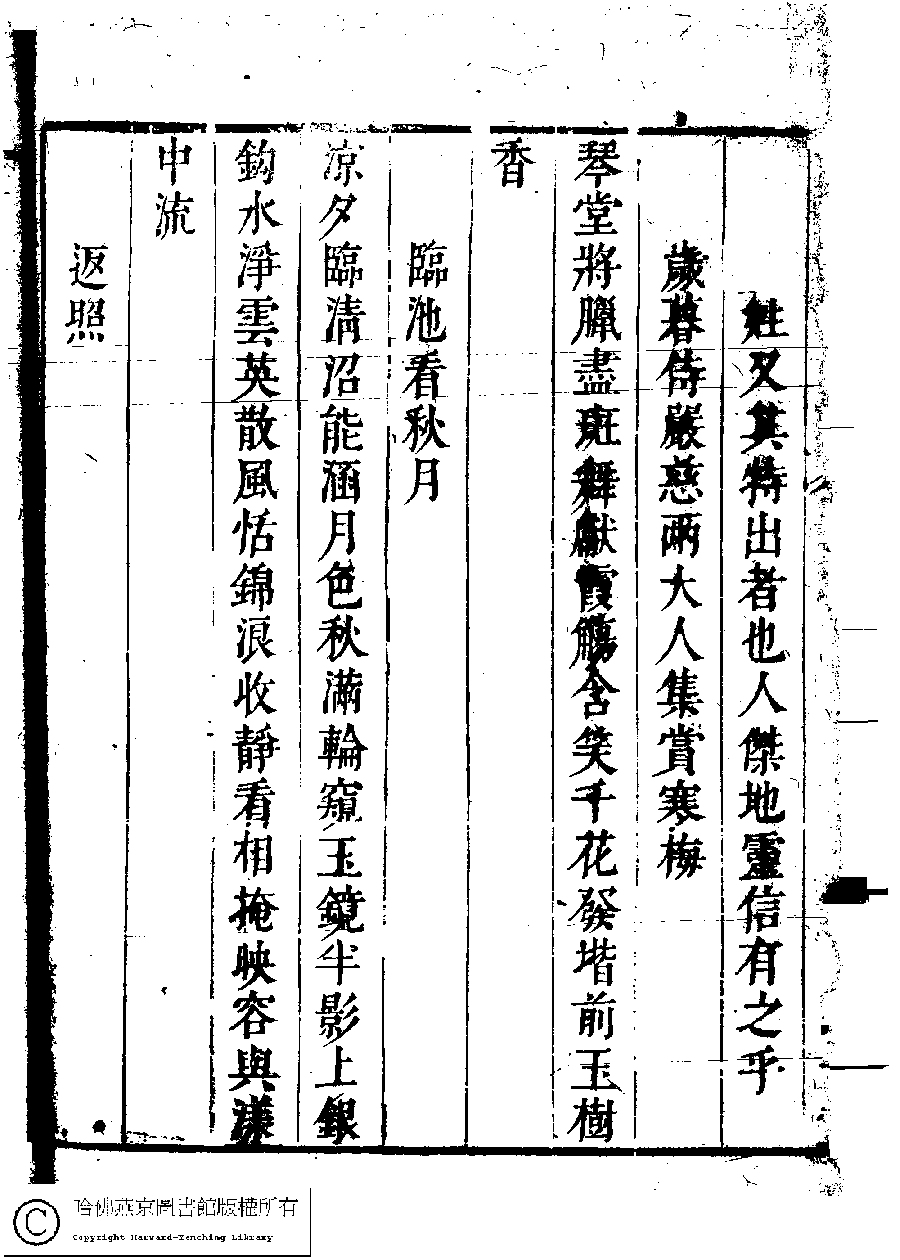 姓又其特出者也人傑地靈信有之乎
歲暮侍嚴慈兩大人集賞寒梅
琴堂將臘盡斑舞獻霞觴含笑千花發堦前玉樹
香
臨池看秋月
凉夕臨清沼能涵月色秋滿輪窺玉鏡半影上銀
鈎水淨雲英散風恬錦浪收靜看相掩映容與漾
中流
返照
哈佛燕京圖書館版權所有
Copyright Harvard-Yenching Library